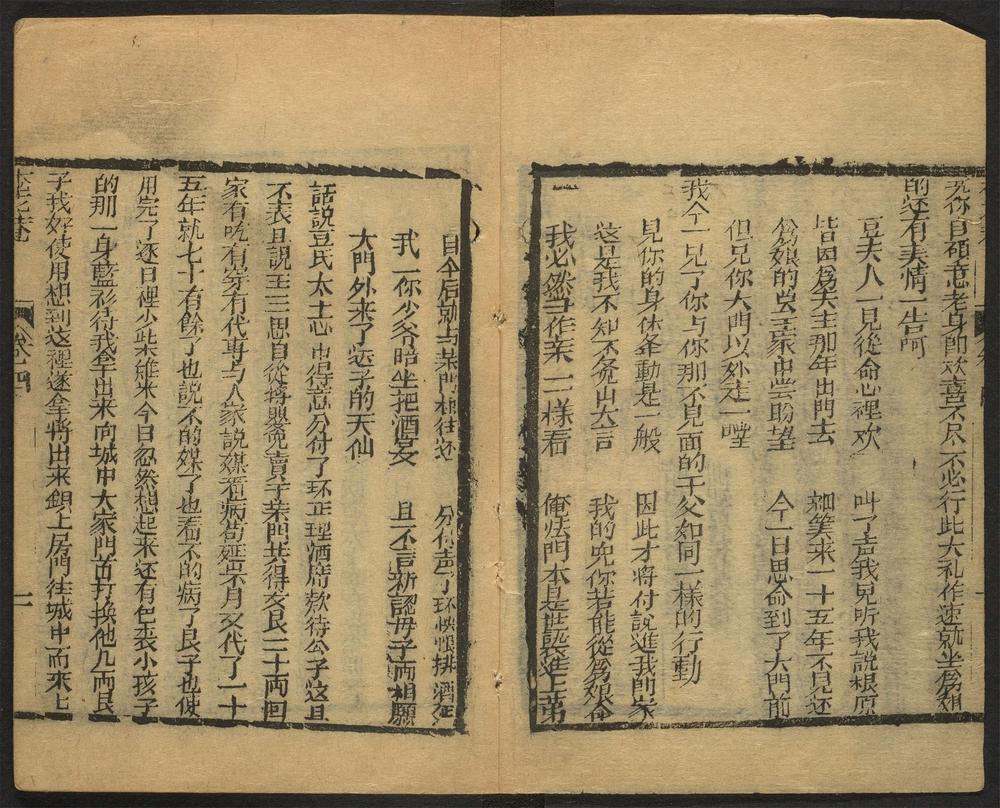 児你自願意老身郎欢喜不尽不必行此大礼作速就坐為娘
的还有表情一告呵
豆夫人一見從命心裡欢 叫了声我児听我說根原
皆因為夫主那年出門去 細算來一十五年不見还
為娘的坐家中尝盼望 今一日思命到了大門前
但見你大門以外走一 
我今一見了你与你那不見面的干父如同一樣的行動
見你的身休条動是一般 因此才將付說進我的家
这是我不知不覚出大言 我的児你若能從為娘命
我必然当作亲一樣看 俺法門本是世袭進士第
自今后就与某門相往还 分付声了环快恨排酒
我一你少爷暗坐把酒安 且不言新認毋子両相願
大門外来了送子的天仙
話說豆氏太士心中得意分付了环正理酒席欵待公子这且
不表且說王三思自從將照児賣于某門共得文艮二十両回
家有吃有穿有代專与人家説媒看病苟延歹月又代了一十
五年就七十有餘了也説不的媒了也看不的病了艮子也使
用完了逐日裡少柴維米今日忽然想起来还有包裹小孩子
的那一身藍衫待我拿出来向城中大家門首打換他几両艮
子我好使用想到这裡遂拿將出来鎖上房門往城中而來七
卷四
二